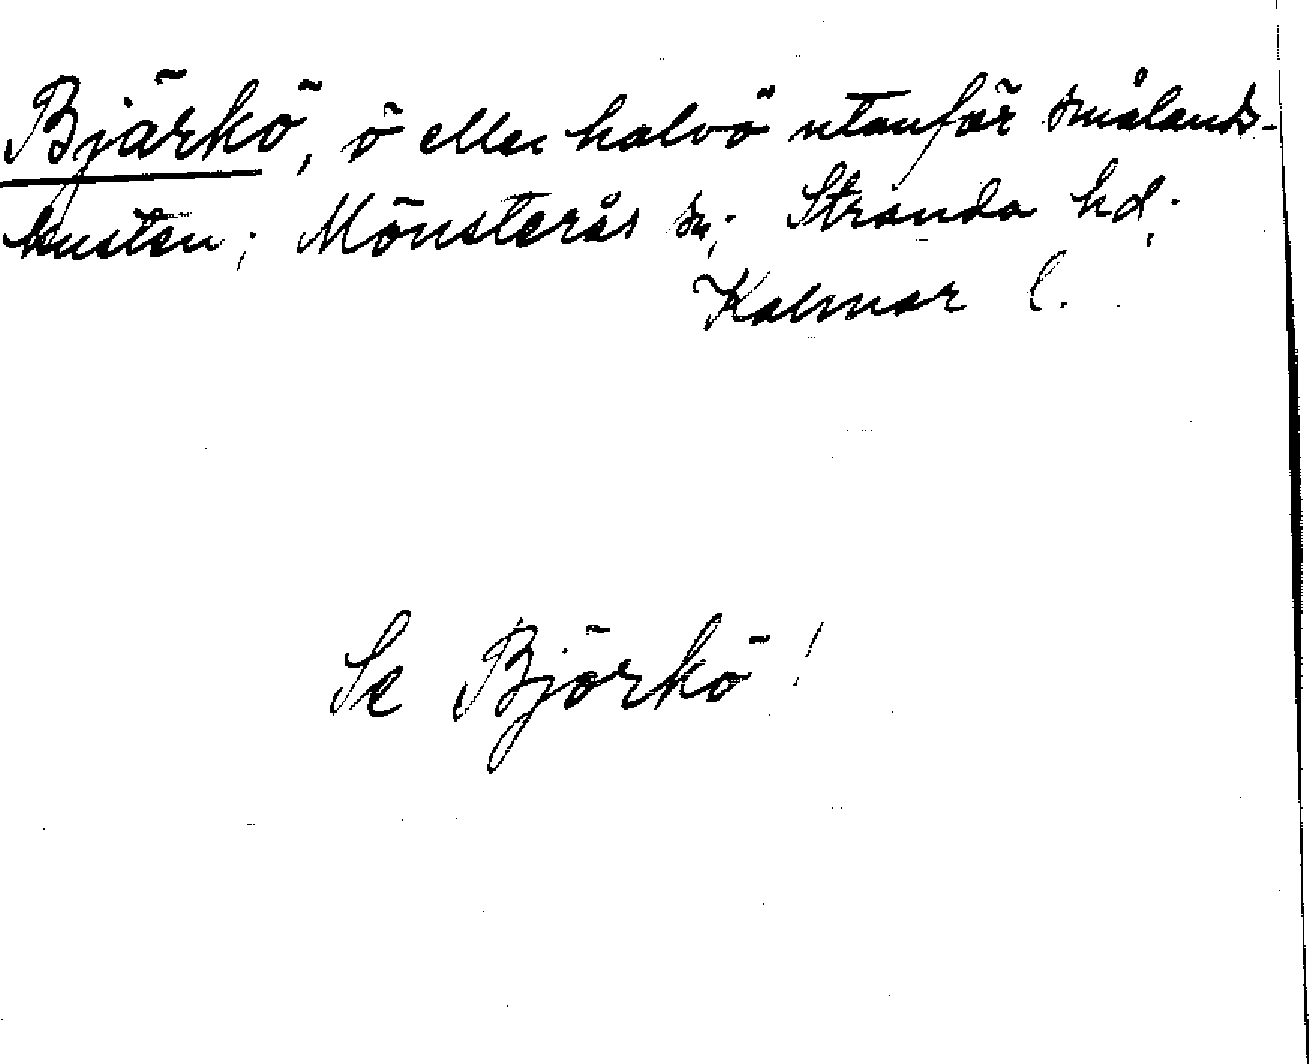 Bjärkö, ö eller halvö utanför smålands-
kusten; Mönsterås sn; Stranda hd;
Kalmar l.
Se Björkö!